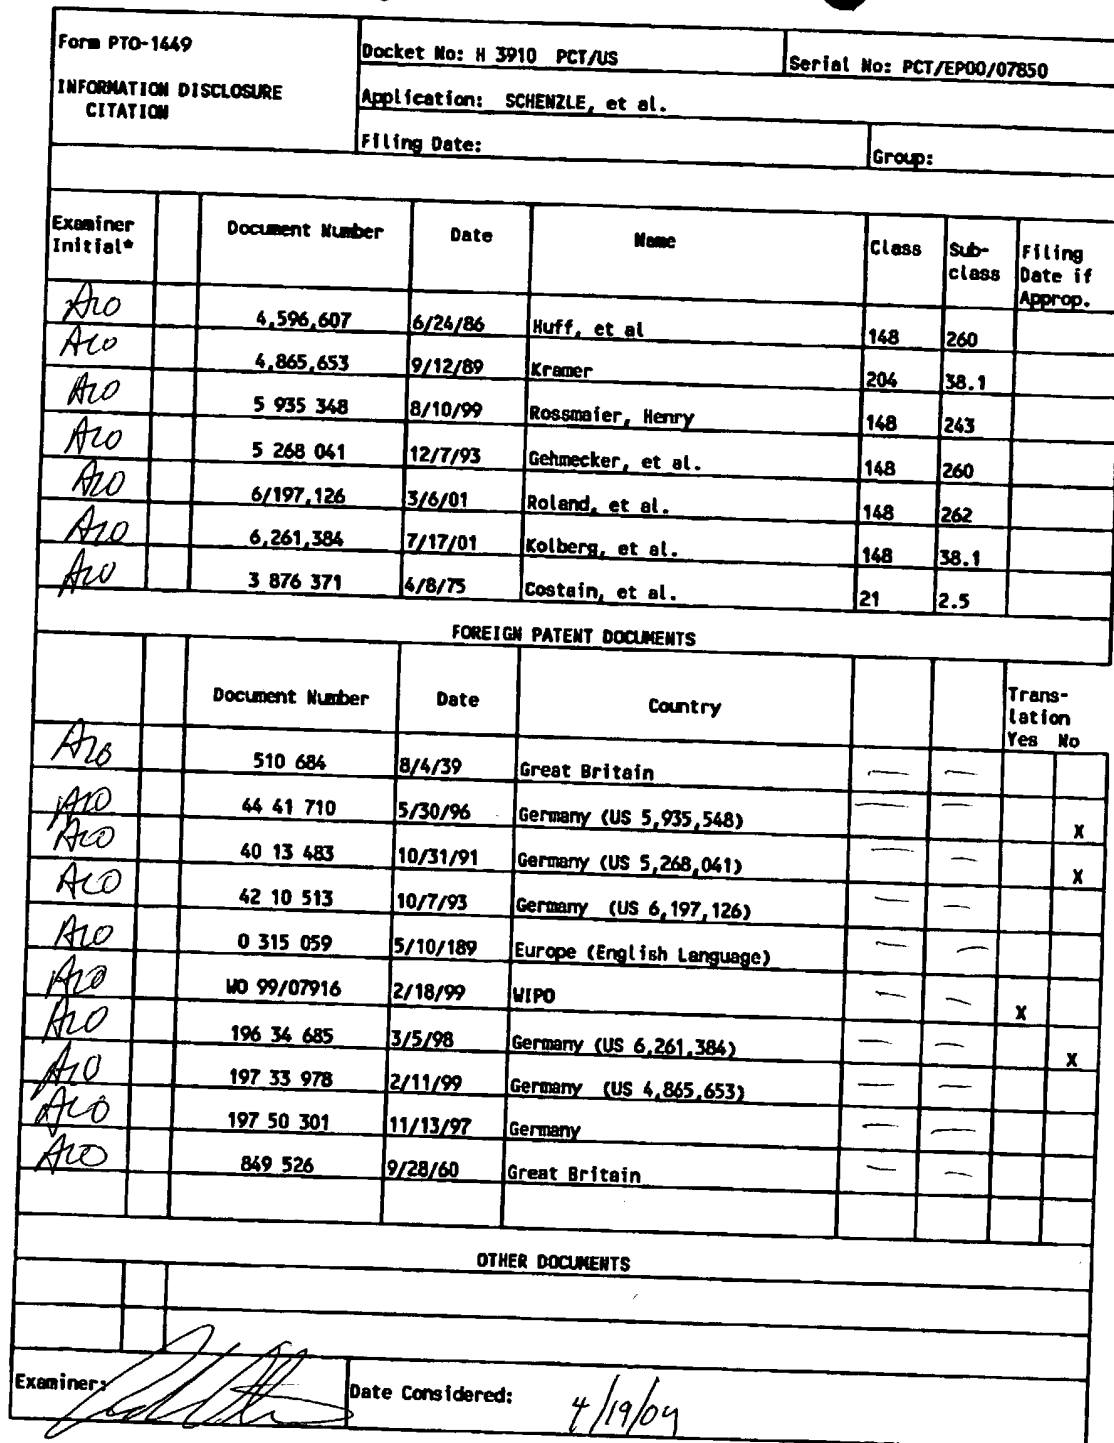 Form PTO-1449
INFORMATION DISCLOSURE
CITATION
Docket No: H 3910 PCT/US
Serial No: PCT/EP00/07850
Application: SCHENZLE, et al.
Filing Date:
Group:
Examiner Initial* Document Number Date Name Class Sub-class Filing Date if Approp.
AZO 4,596,607 6/24/86 Huff, et al 148 260
AZO 4,865,653 9/12/89 Kramer 204 38.1
AZO 5 935 348 8/10/99 Rossmaier, Henry 148 243
AZO 5 268 041 12/7/93 Gehmecker, et al. 148 260
AZO 6/197,126 3/6/01 Roland, et al. 148 262
AZO 6,261,384 7/17/01 Kolberg, et al. 148 38.1
AZO 3 876 371 4/8/75 Costain, et al. 21 2.5
FOREIGN PATENT DOCUMENTS
Document Number Date Country Trans-lation Yes No
AZO 510 684 8/4/39 Great Britain — —
AZO 44 41 710 5/30/96 Germany (US 5,935,548) — — X
AZO 40 13 483 10/31/91 Germany (US 5,268,041) — — X
AZO 42 10 513 10/7/93 Germany (US 6,197,126) — —
AZO 0 315 059 5/10/189 Europe (English Language) — —
AZO WO 99/07916 2/18/99 WIPO — — X
AZO 196 34 685 3/5/98 Germany (US 6,261,384) — — X
AZO 197 33 978 2/11/99 Germany (US 4,865,653) — —
AZO 197 50 301 11/13/97 Germany — —
AZO 849 526 9/28/60 Great Britain — —
OTHER DOCUMENTS
Examiner:
Date Considered: 4/19/04